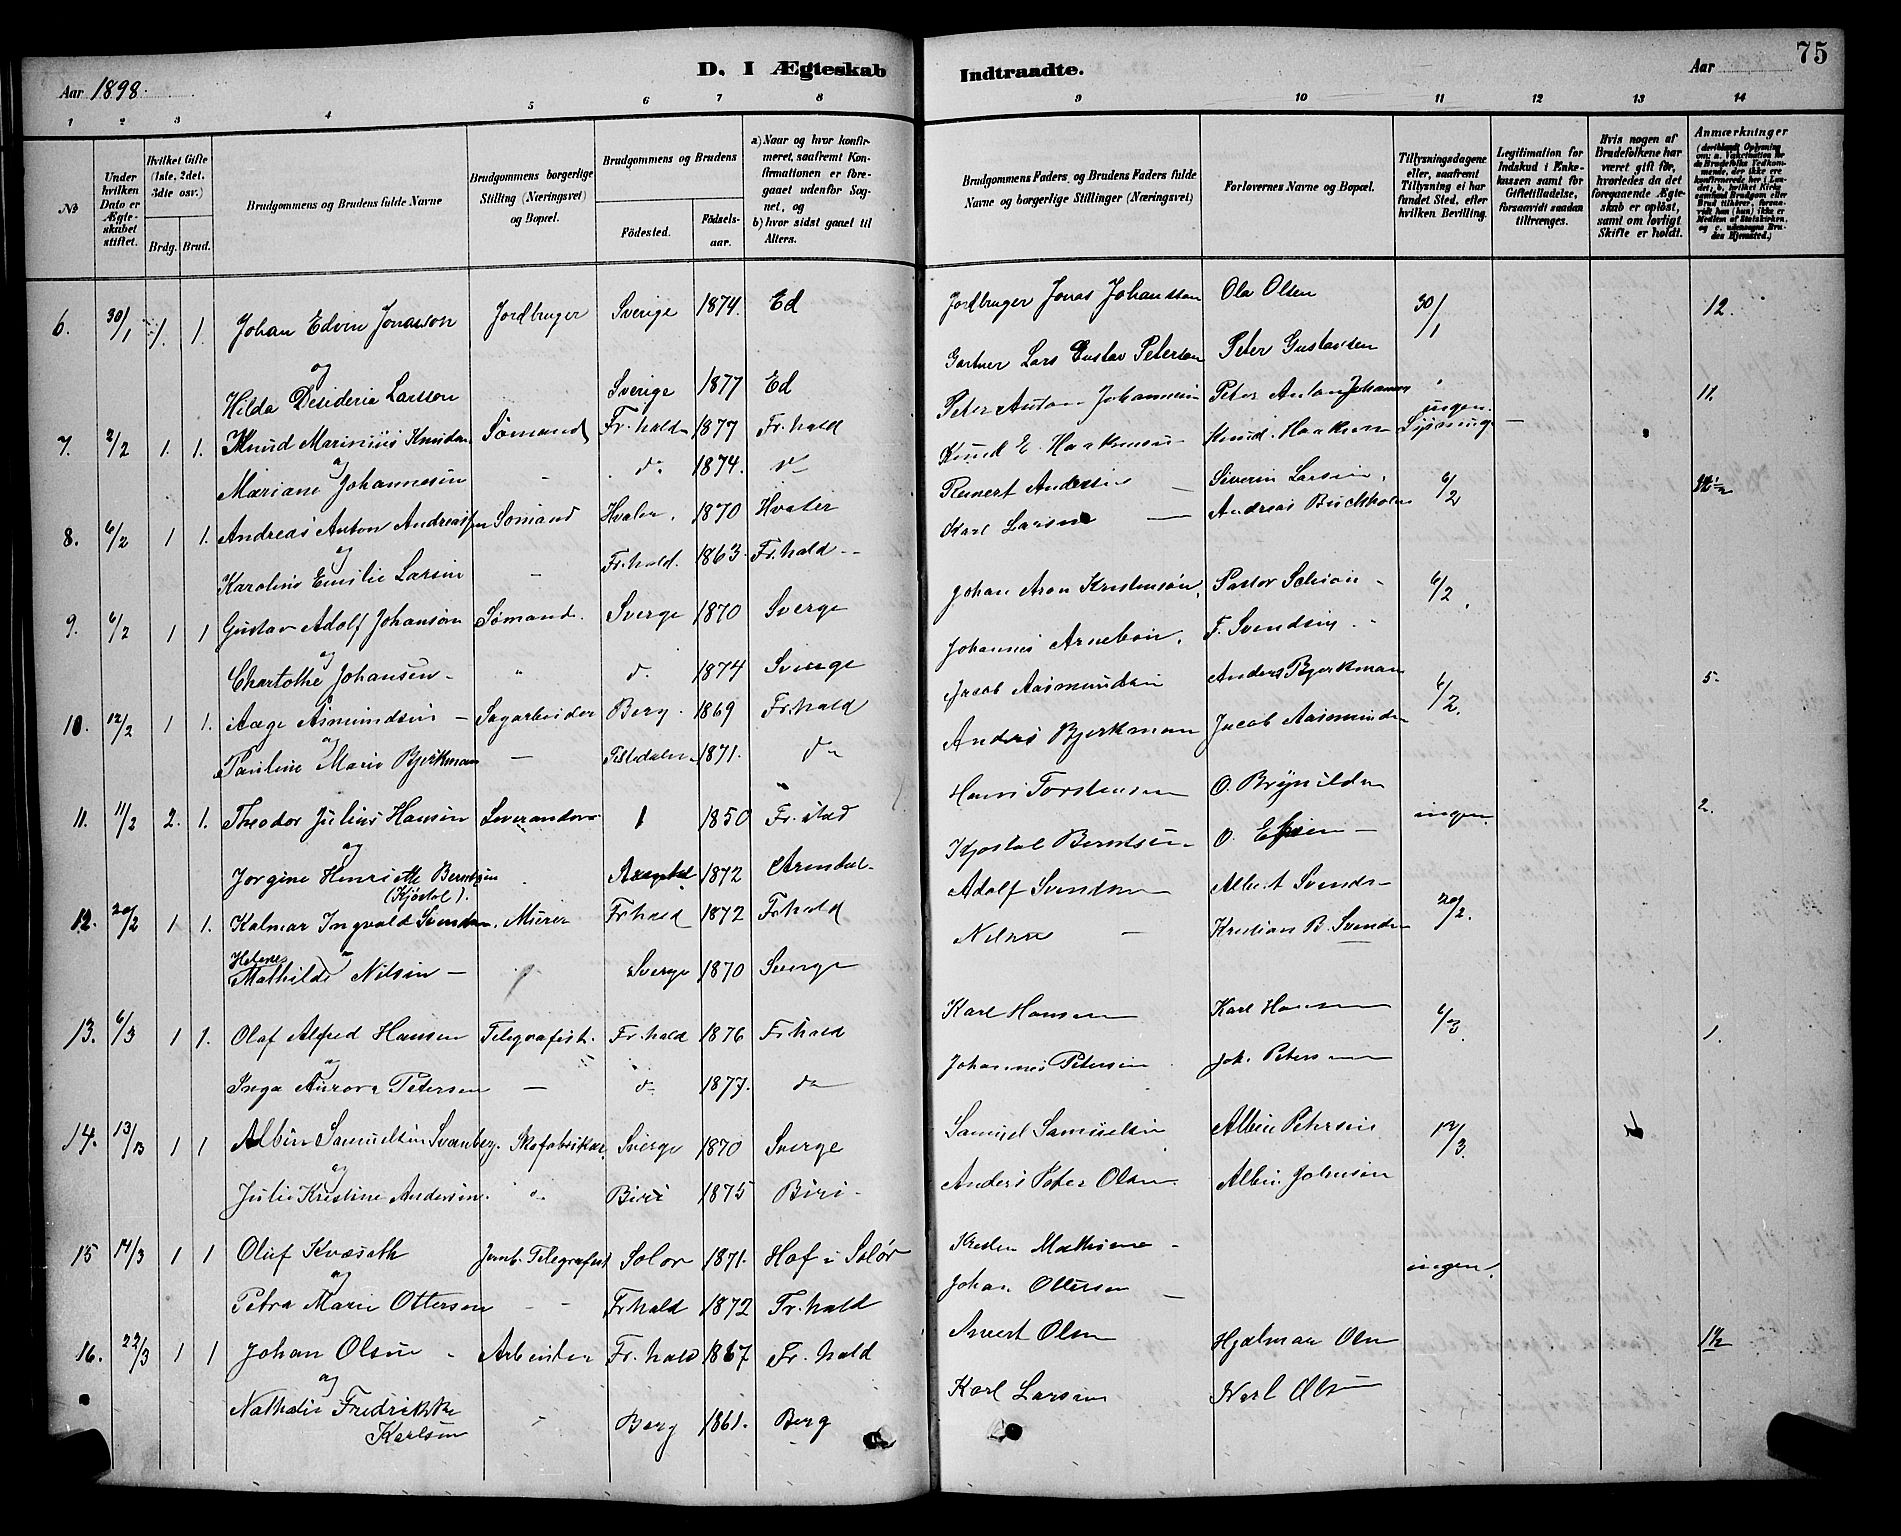 D. I Ægteskab Indtraadte.
75
Aar 1898. Aar
1 2 3 4 5 6 7 8 9 10 11 12 13 14
№
Under hvilken Dato er Ægteskabet stiftet.
Hvilket Gifte (1ste, 2det. 3dte osv.)
Brdg. Brud.
Brudgommens og Brudens fulde Navne
Brudgommens borgerlige Stilling (Næringsvei) og Bopæl.
Brudgommens og Brudens
Fødested. Fødselsaar.
a) Naar og hvor konfirmeret, saafremt Konfirmationen er foregaaet udenfor Sognet, og
b) hvor sidst gaaet til Alters.
Brudgommens Faders og Brudens Faders fulde Navne og borgerlige Stillinger (Næringsvei)
Forlovernes Navne og Bopæl.
Tillysningsdagene eller, saafremt Tillysning ei har fundet Sted, efter hvilken Bevilling.
Legitimation for Indskud i Enkekassen samt for Giftetilladelse, forsaavidt saadan tiltrænges.
Hvis nogen af Brudefolkene har været gift før, hvorledes da det foregaaende Ægteskab er opløst, samt om lovligt Skifte er holdt.
Anmærkninger
6. 30/1 1. 1. Johan Edvin Jonasson Jordbruger Sverige 1874. Ed Jordbruger Jonas Johansson Ola Olsen 30/1 12.
og
Hilda Desideria Larsson Sverige 1877 Ed Gartner Lars Gustav Peterson Peter Gustavsen
7. 2/2 1. 1. Knud Marinius Knudsen Sømand Fr.hald 1877 Fr.hald Peter Anton Johannesen Peter Anton Johannes ingen Lysning 11.
og
Mariane Johannesen - do 1874. do Knud E. Haakensen Knud Haaksen
8. 6/2 1 1. Andreas Anton Andreassen Sømand Hvaler 1870 Hvaler Reinert Andersen Severin Larsen 6/2
og
Karoline Emilie Larsen - Fr.hald. 1863. Fr.hald Karl Larsen Andreas Buckholm
9. 6/2 1 1 Gustav Adolf Johanson Sømand. Sverge 1870 Sverge Johan Aron Kristensøn, Pastor 6/2
og
Johansen d. 1874 Sverge Johannes F. Svendsen
10. 12/2 1 1. Aage Asmundsen Sagarbeider Berg. 1869 Frhald Jacob Aasmundsen Anders Bjerkman 6/2. 5.
og
Pauline Marie Bjerkman - Tistedalen 1871. do Anders Bjerkman Jacob Aasmundsen
11. 11/2 2. 1. Theodor Julius Hansen 1850 Fr.stad Hans Torstensen O. Brynildsen ingen. 2.
og
Jorgine Henriette Berntsen Arendal 1872 Arendal Kjøstol Berntsen O.
(Kjøstol).
12. 20/2 1 1. Kalmar Ingvald Svendsen, Murer Frhald 1872 Frhald Adolf Svendsen Albert Svends 20/2.
Helene
Mathilde Nilsen Sverge 1870 Sverge Nilsen Kristian B. Svendsen
13. 6/3 1 1. Olaf Alfred Hansen Telegrafist. Fr.hald 1876 Frhald Karl Hansen Karl Hansen 6/3. 1.
og
Inga Aurora Petersen - do 1877. do Johannes Petersen Joh. Petersen
14. 13/3 1 1 Albin Samuelsen Svanberg. Skofabrikar. Sverge 1870 Sverge Samuel Samuelsen Albin Petersen 13/3.
og
Julie Kristine Andersen. Biri 1875 Biri. Anders Peter Olsen Albin Johnsen
15 14/3 1 1 Oluf Kvæseth Jernb. Telegrafist Solør 1871. Hof i Solør ingen.
og
Petra Marie Ottersen - - Frhald 1872 Fr.hald Johan Ottersen
16. 22/3 1 1 Johan Olsen Arbeider Fr.hald 1867 Fr.hald Olsen Hjalmar Olsen
og
Nathalie Fredrikke Berg 1861. Berg Karl Larsen Karl Olsen
Karlsen